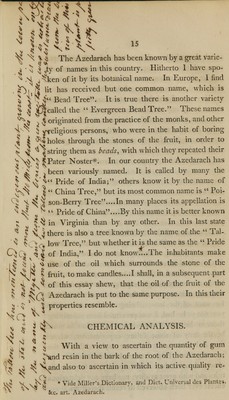 15
The Azedarach has been known by a great varie-
ty of names in this country. Hitherto I have spo-
ken of it by its botanical name. In Europe, I find
it has received but one common name, which is
" Bead Tree". It is true there is another variety
called the " Evergreen Bead Tree." These names
originated from the practice of the monks, and other
religious persons, who were in the habit of boring
holes through the stones of the fruit, in order to
string them as beads, with which they repeated their
Pater Noster*. In our country the Azedarach has
been variously named. It is called by many the
" Pride of India;" others know it by the name of
" China Tree," but its most common name is " Poi-
son-Berry Tree"....In many places its appellation is
" Pride of China"....By this name it is better known
in Virginia than by any other. In this last state
there is also a tree known by the name of the " Tal-
low Tree," but whether it is the same as the " Pride
of India," I do not know....The inhabitants make
use of the oil which surrounds the stone of the
fruit, to make candles....I shall, in a subsequent part
of this essay shew, that the oil of the fruit of the
Azedarach is put to the same purpose. In this their
properties resemble.
CHEMICAL ANALYSIS.
With a view to ascertain the quantity of gum
and resin in the bark of the root of the Azedarach;
and also to ascertain in which its active quality re-
* Vide Miller's Dictionary, and Dict. Universal des Plantes,
&c. art. Azedarach.
The Tallow tree here mentioned is an indigenous plant growing in the
by the name of